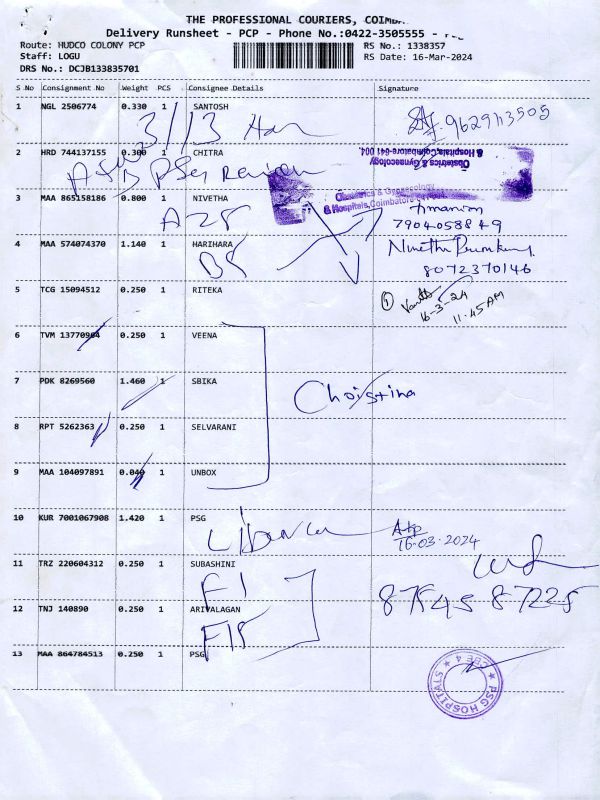 THE PROFESSIONAL COURIERS,
Delivery Runsheet - PCP - Phone No.:0422-3505555 -
Route: HUDCO COLONY PCP
RS No.: 1338357
Staff: LOGU
RS Date: 16-Mar-2024
DRS No.: DCJB133835701
S No Consignment No Weight PCS Consignee Details Signature
1 NGL 2506774 0.330 1 SANTOSH
3/13
9629113505
2 HRD 744137155 0.300 1 CHITRA
Obstetrics & Gynaecology
& Hospitals, Coimbatore-641 004.
3 MAA 865158186 0.800 1 NIVETHA
Obstetrics & Gynaecology
& Hospitals, Coimbatore
A28
7904058849
4 MAA 574074370 1.140 1 HARIHARA
B8
8072370146
5 TCG 15094512 0.250 1 RITEKA
1
16-3-24
11.45AM
6 TVM 13770904 0.250 1 VEENA
7 PDK 8269560 1.460 1 SBIKA
Christina
8 RPT 5262363 0.250 1 SELVARANI
9 MAA 104097891 0.040 1 UNBOX
10 KUR 7001067908 1.420 1 PSG
16-03-2024
11 TRZ 220604312 0.250 1 SUBASHINI
F1
87545 87225
12 TNJ 140890 0.250 1 ARIVALAGAN
F18
13 MAA 864784513 0.250 1 PSG
★ PSG HOSPITALS ★ CBE 4